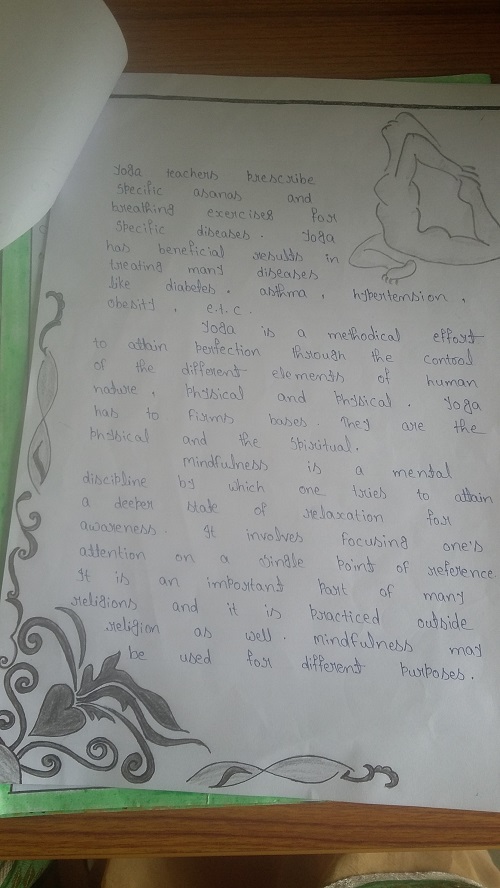 Yoga teachers prescribe
specific asanas and
breathing exercises for
specific diseases. Yoga
has beneficial results in
treating many diseases
like diabetes, asthma, hypertension,
obesity, e.t.c.
Yoga is a methodical effort
to attain perfection through the control
of the different elements of human
nature, physical and physical. Yoga
has to firms bases. They are the
physical and the spiritual.
mindfulness is a mental
discipline by which one tries to attain
a deeper state of relaxation for
awareness. It involves focusing one's
attention on a single point of reference.
It is an important part of many
religions and it is practiced outside
religion as well. mindfulness may
be used for different purposes.